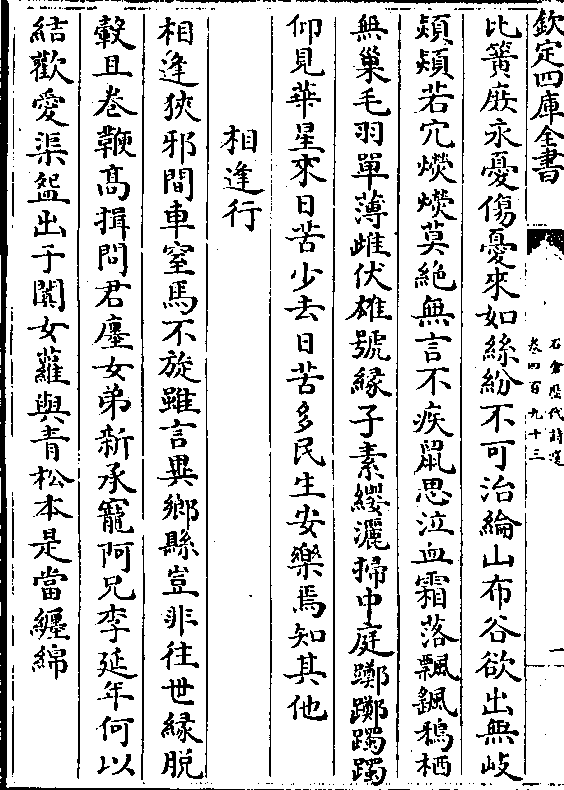 欽定四庫全書
石倉歷代詩選
卷四百九十三
一
比簧庡永憂傷憂來如絲紛不可治綸山布谷欲出無岐
頍頍若宂爕爕莫絶無言不疾鼠思泣血霜落飄飄鵶栖
無巢毛羽單薄雌伏雄號縁子素纓灑掃中庭躑躑躅躅
仰見華星來日苦少去日苦多民生安樂焉知其他
相逢行
相逢狹邪間車窒馬不旋雖言異鄉縣豈非往世縁脱
轂且卷鞭髙揖問君廛女弟新承寵阿兄李延年何以
結歡愛渠盌出于闐女蘿與青松本是當纒綿